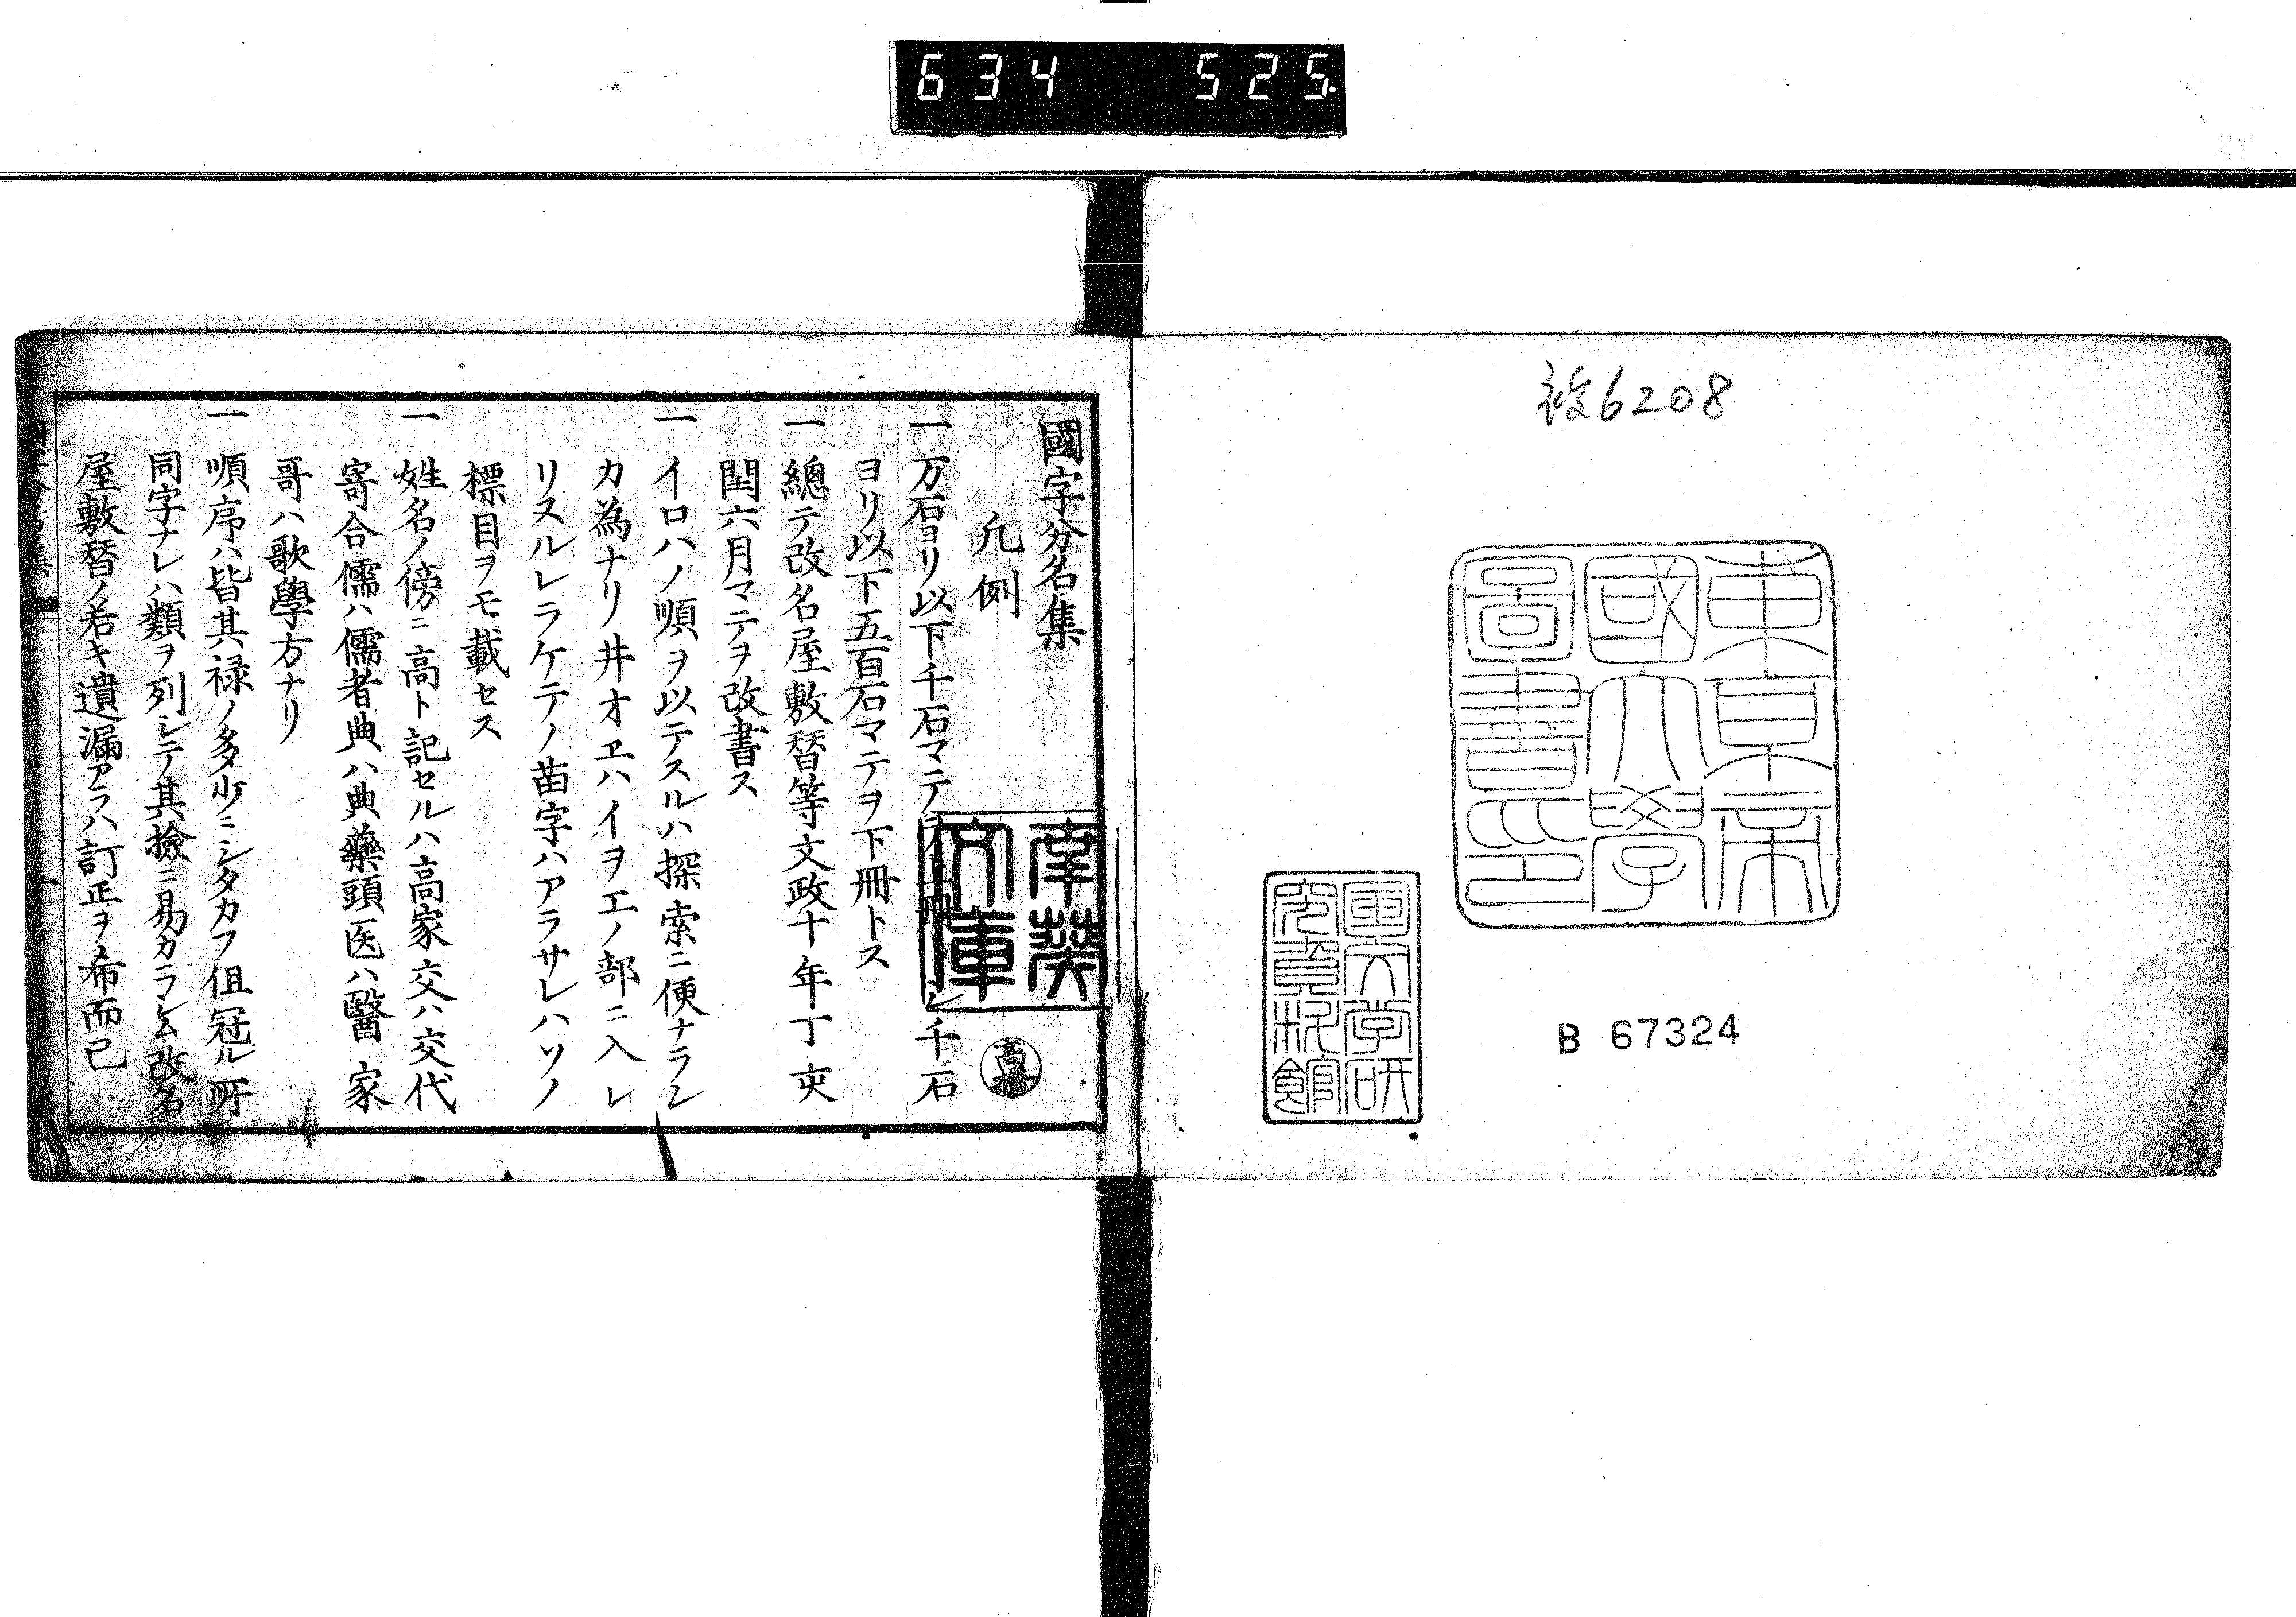 634 525
複6208
東京帝
國大學
圖書印
國文学研
究資料館
B 67324
國字分名集
凡例
一万石ヨリ以下千石マテヲ上冊トシ千石
ヨリ以下五百石マテヲ下冊トス
一總テ改名屋敷替等文政十年丁亥
閏六月マテヲ改書ス
一イロハノ順ヲ以テスルハ探索ニ便ナラシ
カ為ナリ井オヱハイヲエノ部ニ入レ
リヌルレラケテノ苗字ハアラサレハソノ
標目ヲモ載セス
一姓名ノ傍ニ高ト記セルハ高家交ハ交代
寄合儒ハ儒者典ハ典藥頭医ハ醫家
哥ハ歌學方ナリ
一順序ハ皆其禄ノ多少ニシタカフ伹冠ル所
同字ナレハ類ヲ列シテ其撿ニ易カラシム改名
屋敷替ノ若キ遺漏アラハ訂正ヲ希而已
南葵
文庫